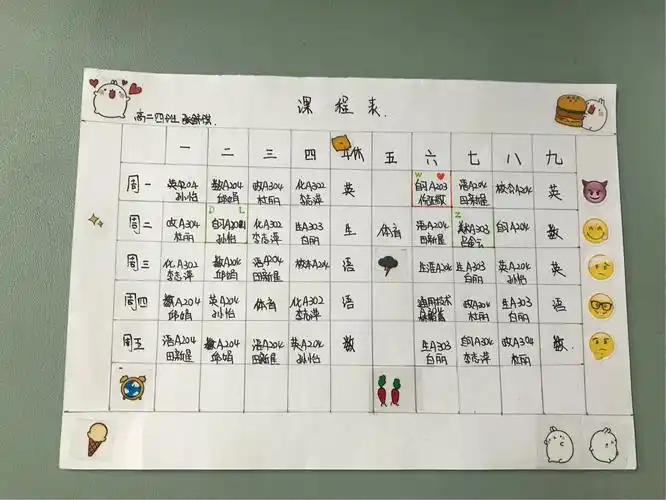 课 程 表.
高二四班
一 二 三 四 午休 五 六 七 八 九
周一 英A204 孙怡 数A204 邱娟 政A304 杜丽 化A302 李志萍 英 自习A203 语A204 田新星 校会A204 英
W
D L
周二 政A304 杜丽 自习A204 孙怡 化A302 李志萍 生A303 白丽 生 体育 语A204 田新星 美术A303 吕会云 自习A204 数
Z
周三 化A302 李志萍 数A204 邱娟 语A204 田新星 校本A204 语 生涯A204 生A303 白丽 英A204 孙怡 英
周四 数A204 邱娟 英A204 孙怡 体育 化A302 李志萍 语 通用技术 政A304 杜丽 生A303 白丽 语
周五 语A204 田新星 数A204 邱娟 语A204 田新星 英A204 孙怡 数 生A303 白丽 自习A304 李志萍 政A304 杜丽 数.